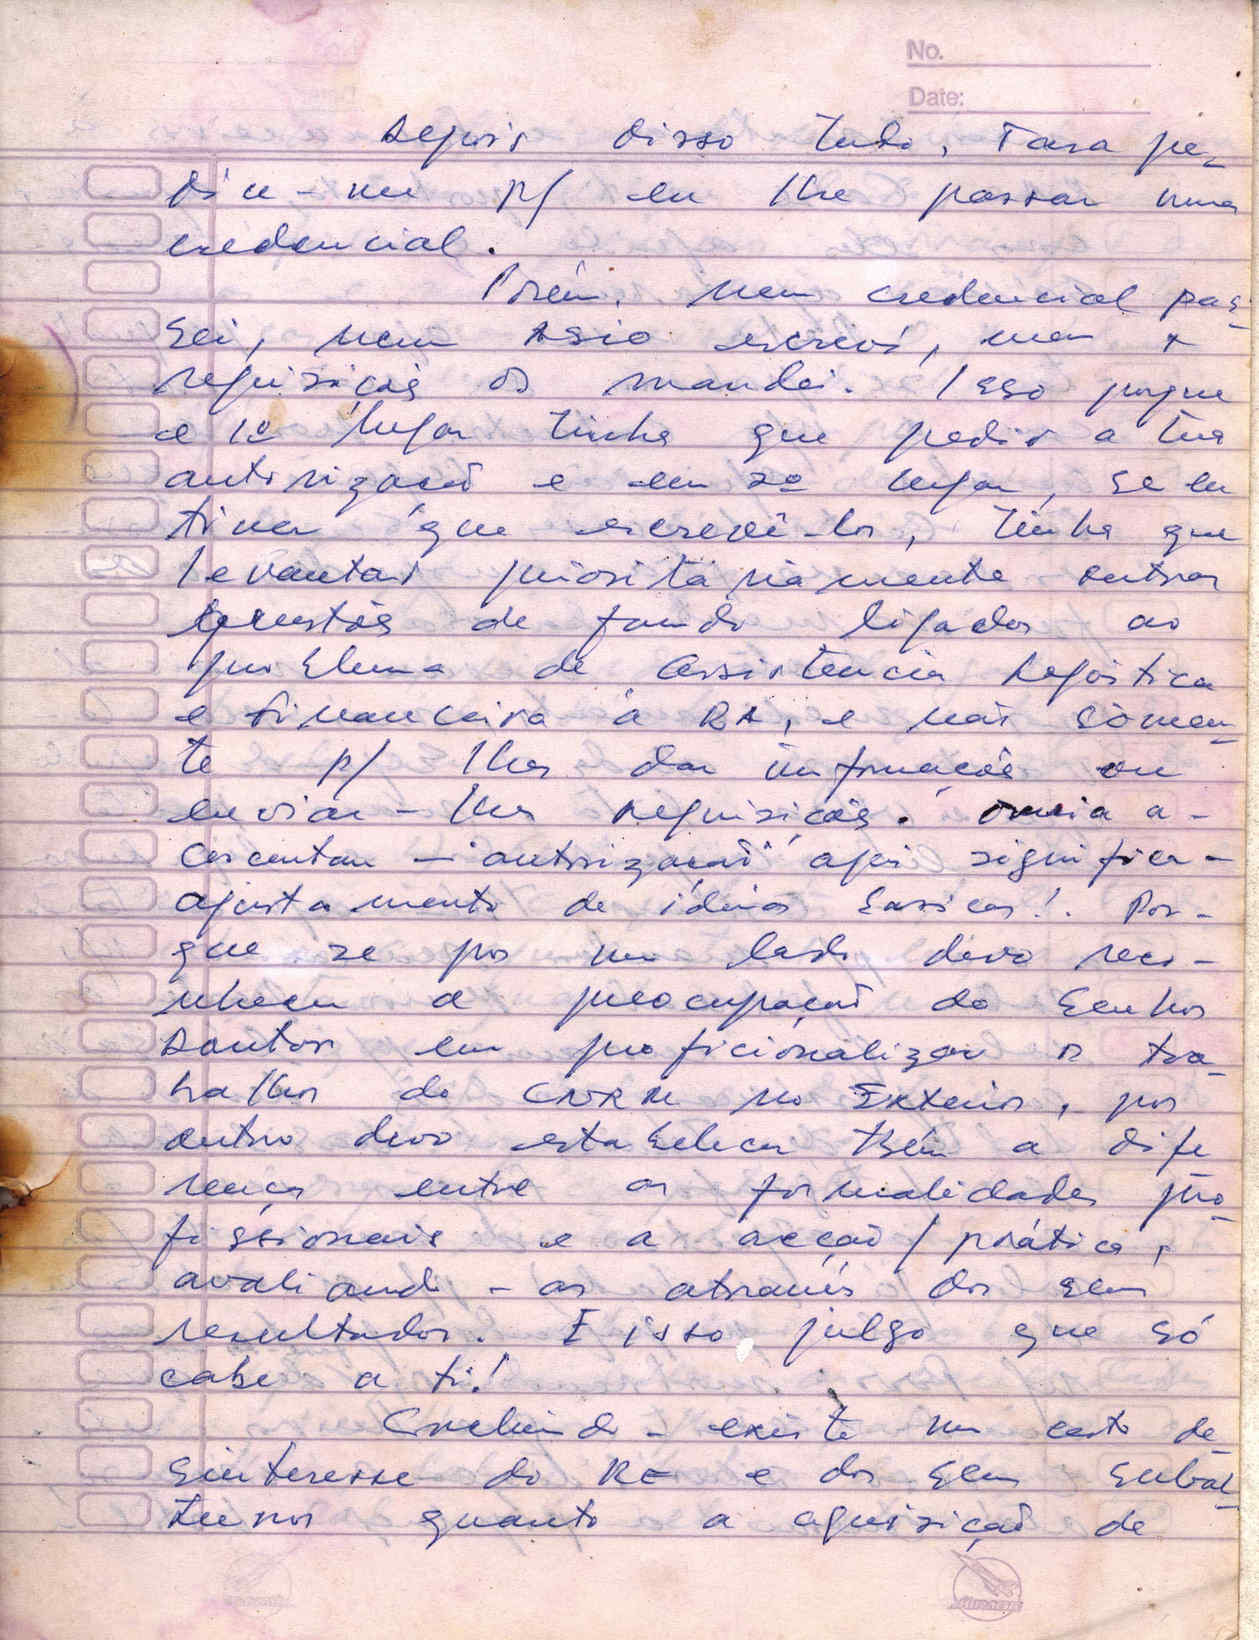 No.
Date:
Depois disso tudo, Tara pe-
diu-me p/ eu lhe passar uma
credencial.
Porém, nem credencial pas-
sei, nem ASIO escreví, nem +
requisições os mandei. Isso porque
e 1º lugar tinha que pedir a tua
autorização e em 2º lugar, se eu
tiver que escrevê-los, tinha que
levantar prioritáriamente outras
questões de fundo ligados ao
problema de assistência logística
e financeira à RA, e não sòmen-
te p/ lhes dar informações ou
enviar-lhes requisições. Queria a-
crescentar - "autorização" aqui significa -
ajustamento de idéias básicas! Por-
que se por um lado devo reco-
nhecer a preocupação do Senhor
Santos em proficionalizar o tra-
balhos do CNRM no Exterior, por
outro devo estabelecer tbém a dife-
rença entre as formalidades pro-
fissionais e a acção/prática,
avaliando-as através dos seus
resultados. E isso, julgo que só
cabe a ti!
Concluindo - existe um certo de-
sinteresse do RE e dos seus subal-
ternos quanto a aquisição de